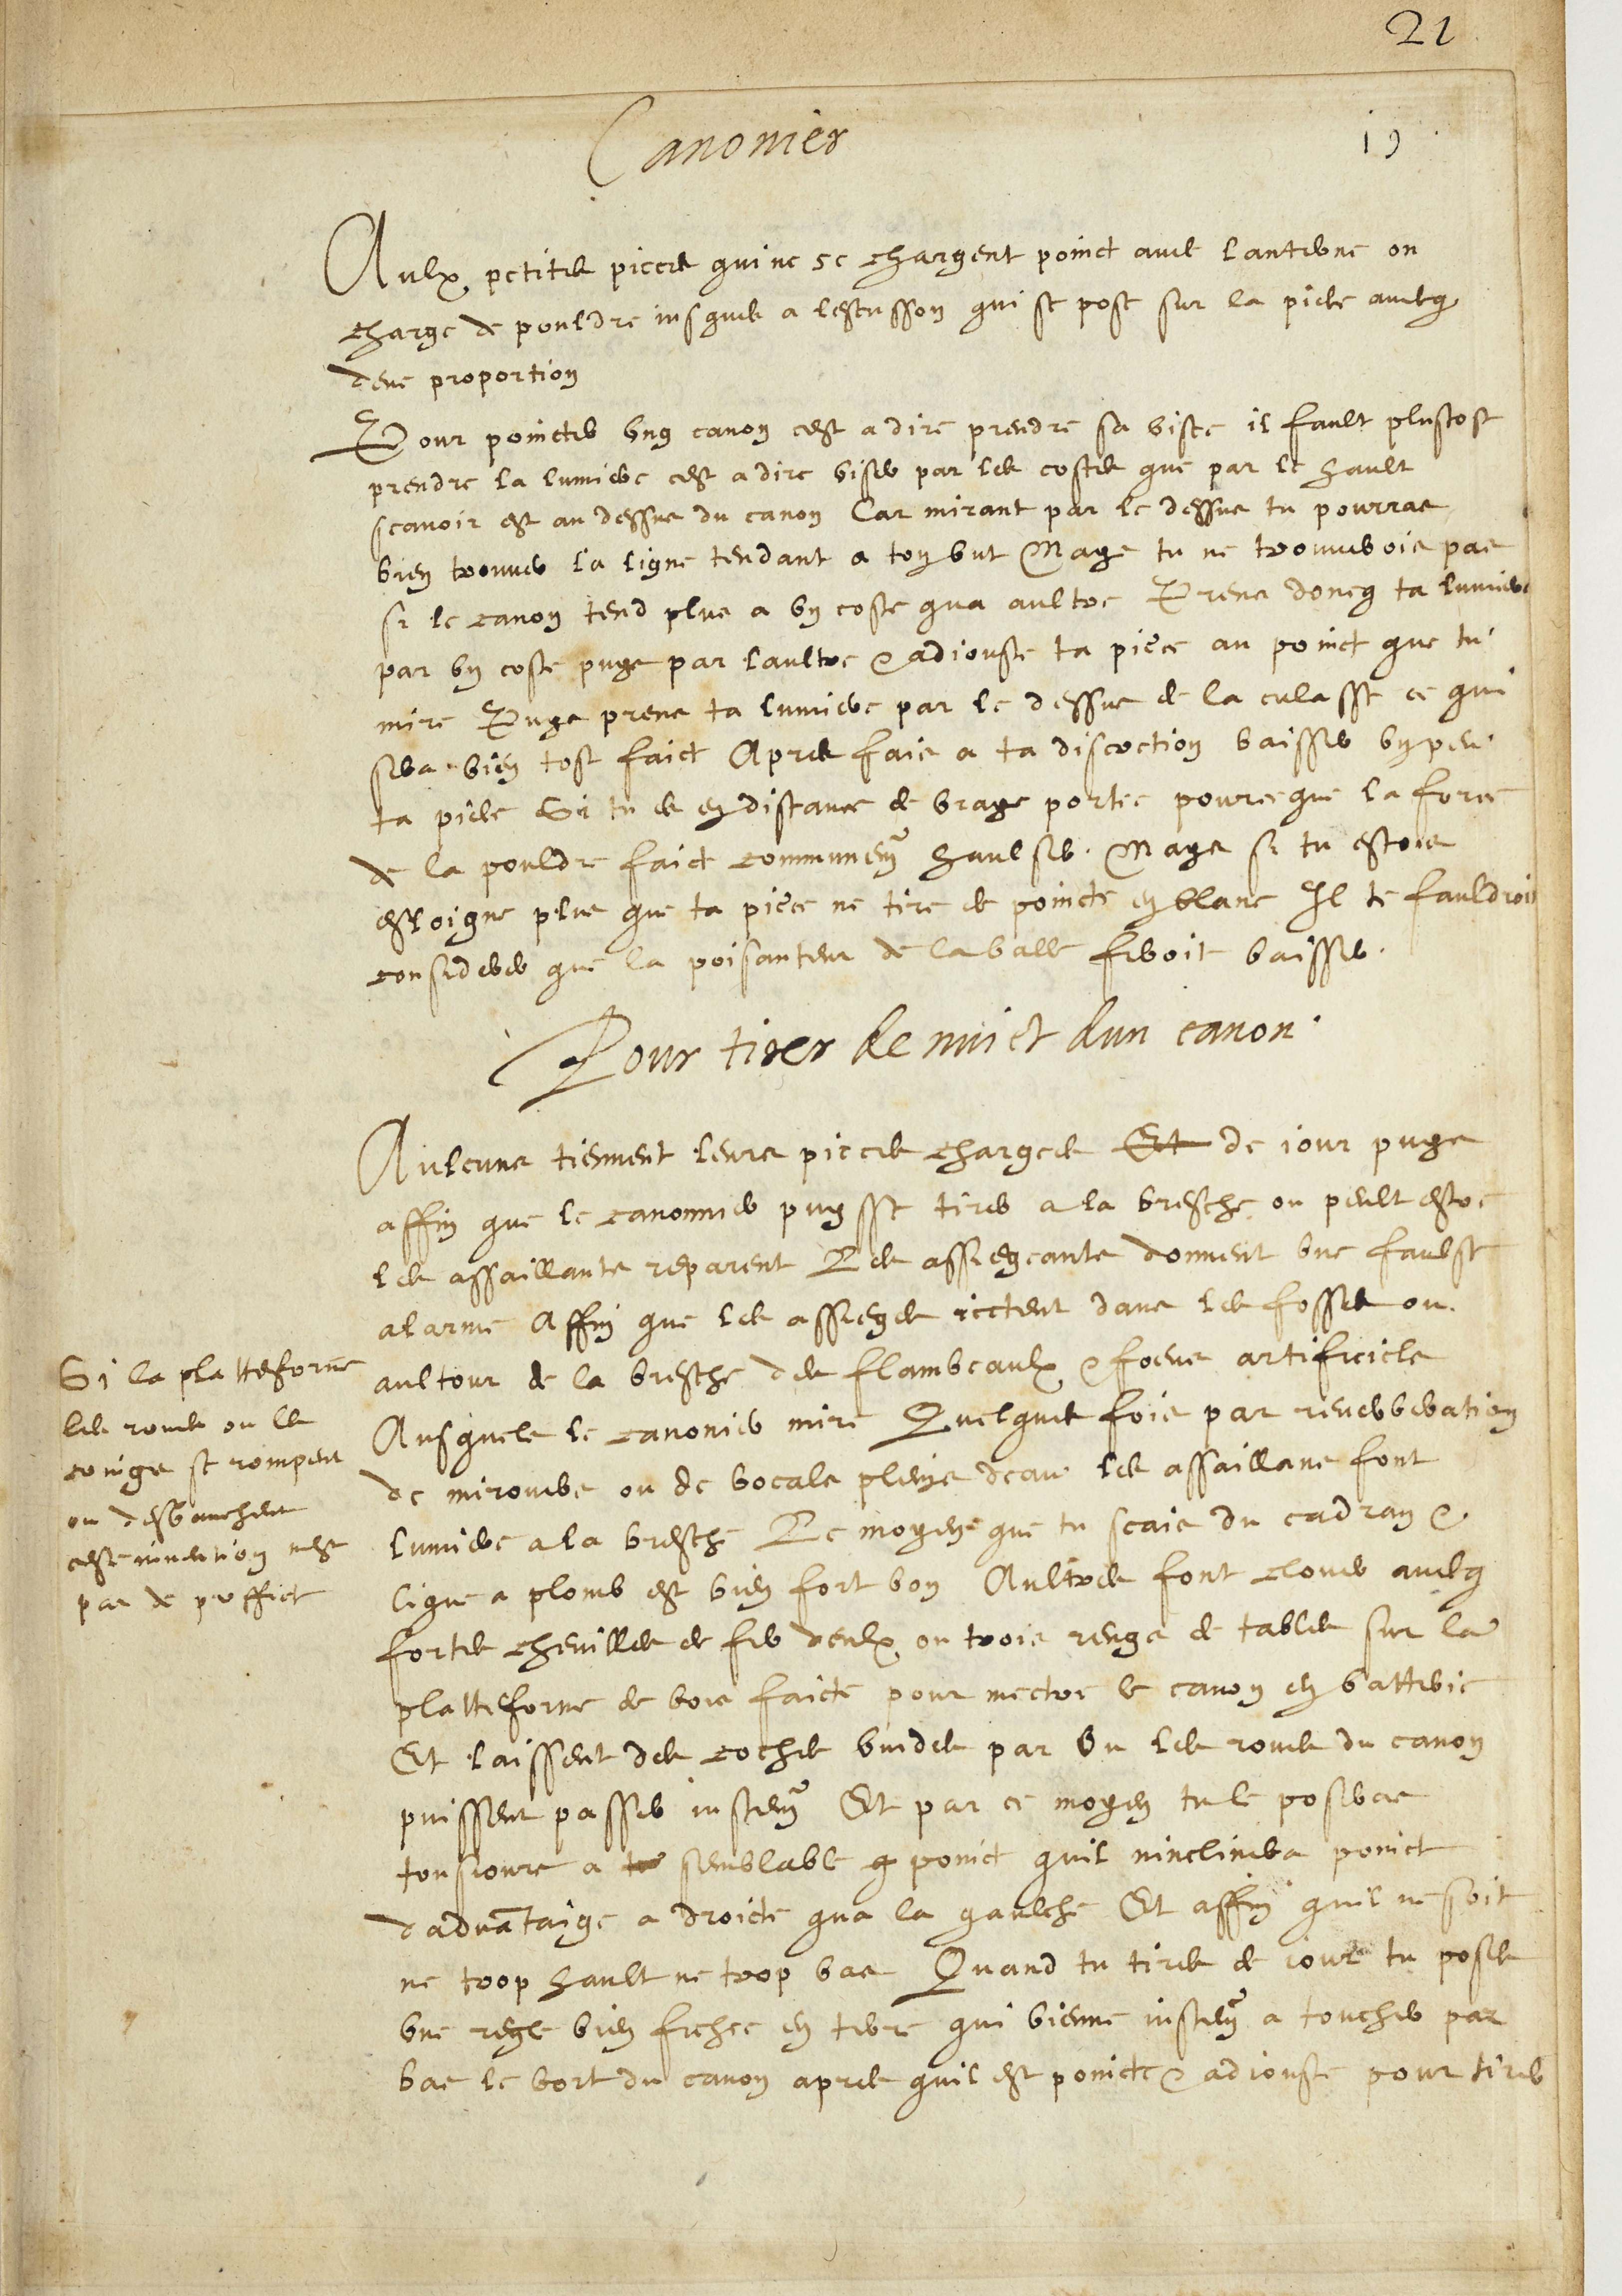 21
Canonier
19
Aulx petites pieces qui ne se chargent poinct avec lanterne on
charge de pouldre jusques a lescusson qui se pose sur la piece avecq
deue proportion
Pour poincter ung canon cest a dire prendre sa visee il fault plustost
prendre la lumiere cest a dire viser par les costes que par le hault
scavoir est au dessus du canon Car mirant par le dessus tu pourras
bien trouver la ligne tendant a ton but Mays tu ne trouverois pas
si le canon tend plus a un coste qua aultre Prens doncq ta lumiere
par un coste puys par laultre & adjouste ta piece au poinct que tu
mire Puys prens ta lumiere par le dessus de la culasse ce qui
sera bien tost faict Apres fais a ta discretion baisser un peu
ta piece Si tu es en distance de braye portee pource que la force
de la pouldre faict communem~ haulser Mays si tu estois
esloigne plus que ta piece ne tire de poincte en blanc Il te fauldroit
considerer que la poisanteur de la balle feroit baisser
Pour tirer de nuict dun canon
Aulcuns tiennent leurs pieces chargees Et de jour puys
affin que le canonnier puysse tirer a la bresche ou peult estre
les assaillants reparent Les assiegeants donnent une faulse
alarme Affin que les assieges jectent dans les fosses ou
aultour de la bresche des flambeaulx & foeus artificiels
Ausquels le canonier mire Quelques fois par reverberation
de mirouers ou de bocals pleins deau les assaillans font
lumiere a la bresche Le moyen que tu scais du cadran &
ligne a plomb est bien fort bon Aultres font clouer avecq
fortes chevilles de fer deulx ou trois rengs de tables sur la
platteforme de bois faicte pour mectre le canon en batterie
Et laissent des coches vuides par ou les roues du canon
puissent passer justem~ Et par ce moyen tu le poseras
tousjours a semblable poinct quil ninclinera poinct
dadvātaige a droicte qua la gaulche Et affin quil ne soit
ne trop hault ne trop bas Quand tu tires de jour tu poses
une regle bien fichee en terre qui vienne justem~ a toucher par
bas le bort du canon apres quil est poincte & adjouste pour tirer
Si la platteforme
les roues ou le
coings se rompent
ou desbauchent
ceste invention nest
pas de proffict